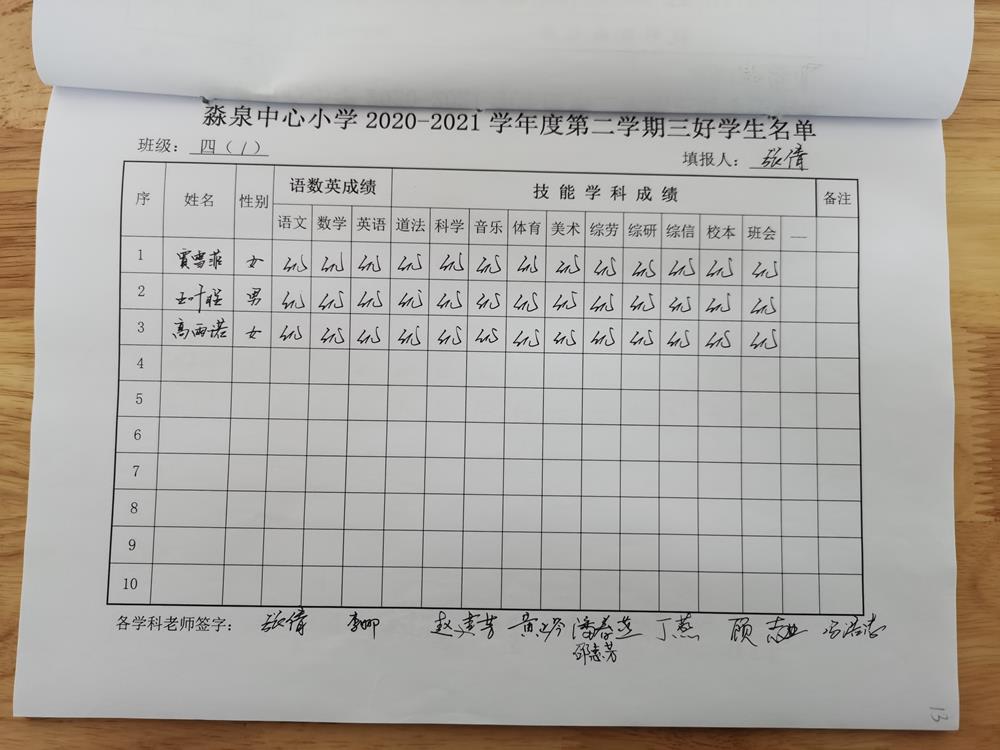 淼泉中心小学 2020-2021 学年度第二学期三好学生名单
班级： 四（1） 填报人： 张倩
序 姓名 性别 语数英成绩 技能学科成绩 备注
语文 数学 英语 道法 科学 音乐 体育 美术 综劳 综研 综信 校本 班会 —
1 贾雪菲 女 优 优 优 优 优 优 优 优 优 优 优 优 优
2 王叶程 男 优 优 优 优 优 优 优 优 优 优 优 优 优
3 高雨诺 女 优 优 优 优 优 优 优 优 优 优 优 优 优
4
5
6
7
8
9
10
各学科老师签字： 张倩 李娜 赵建芳 潘春燕 丁燕 顾志 冯浩志
邵志芳
13